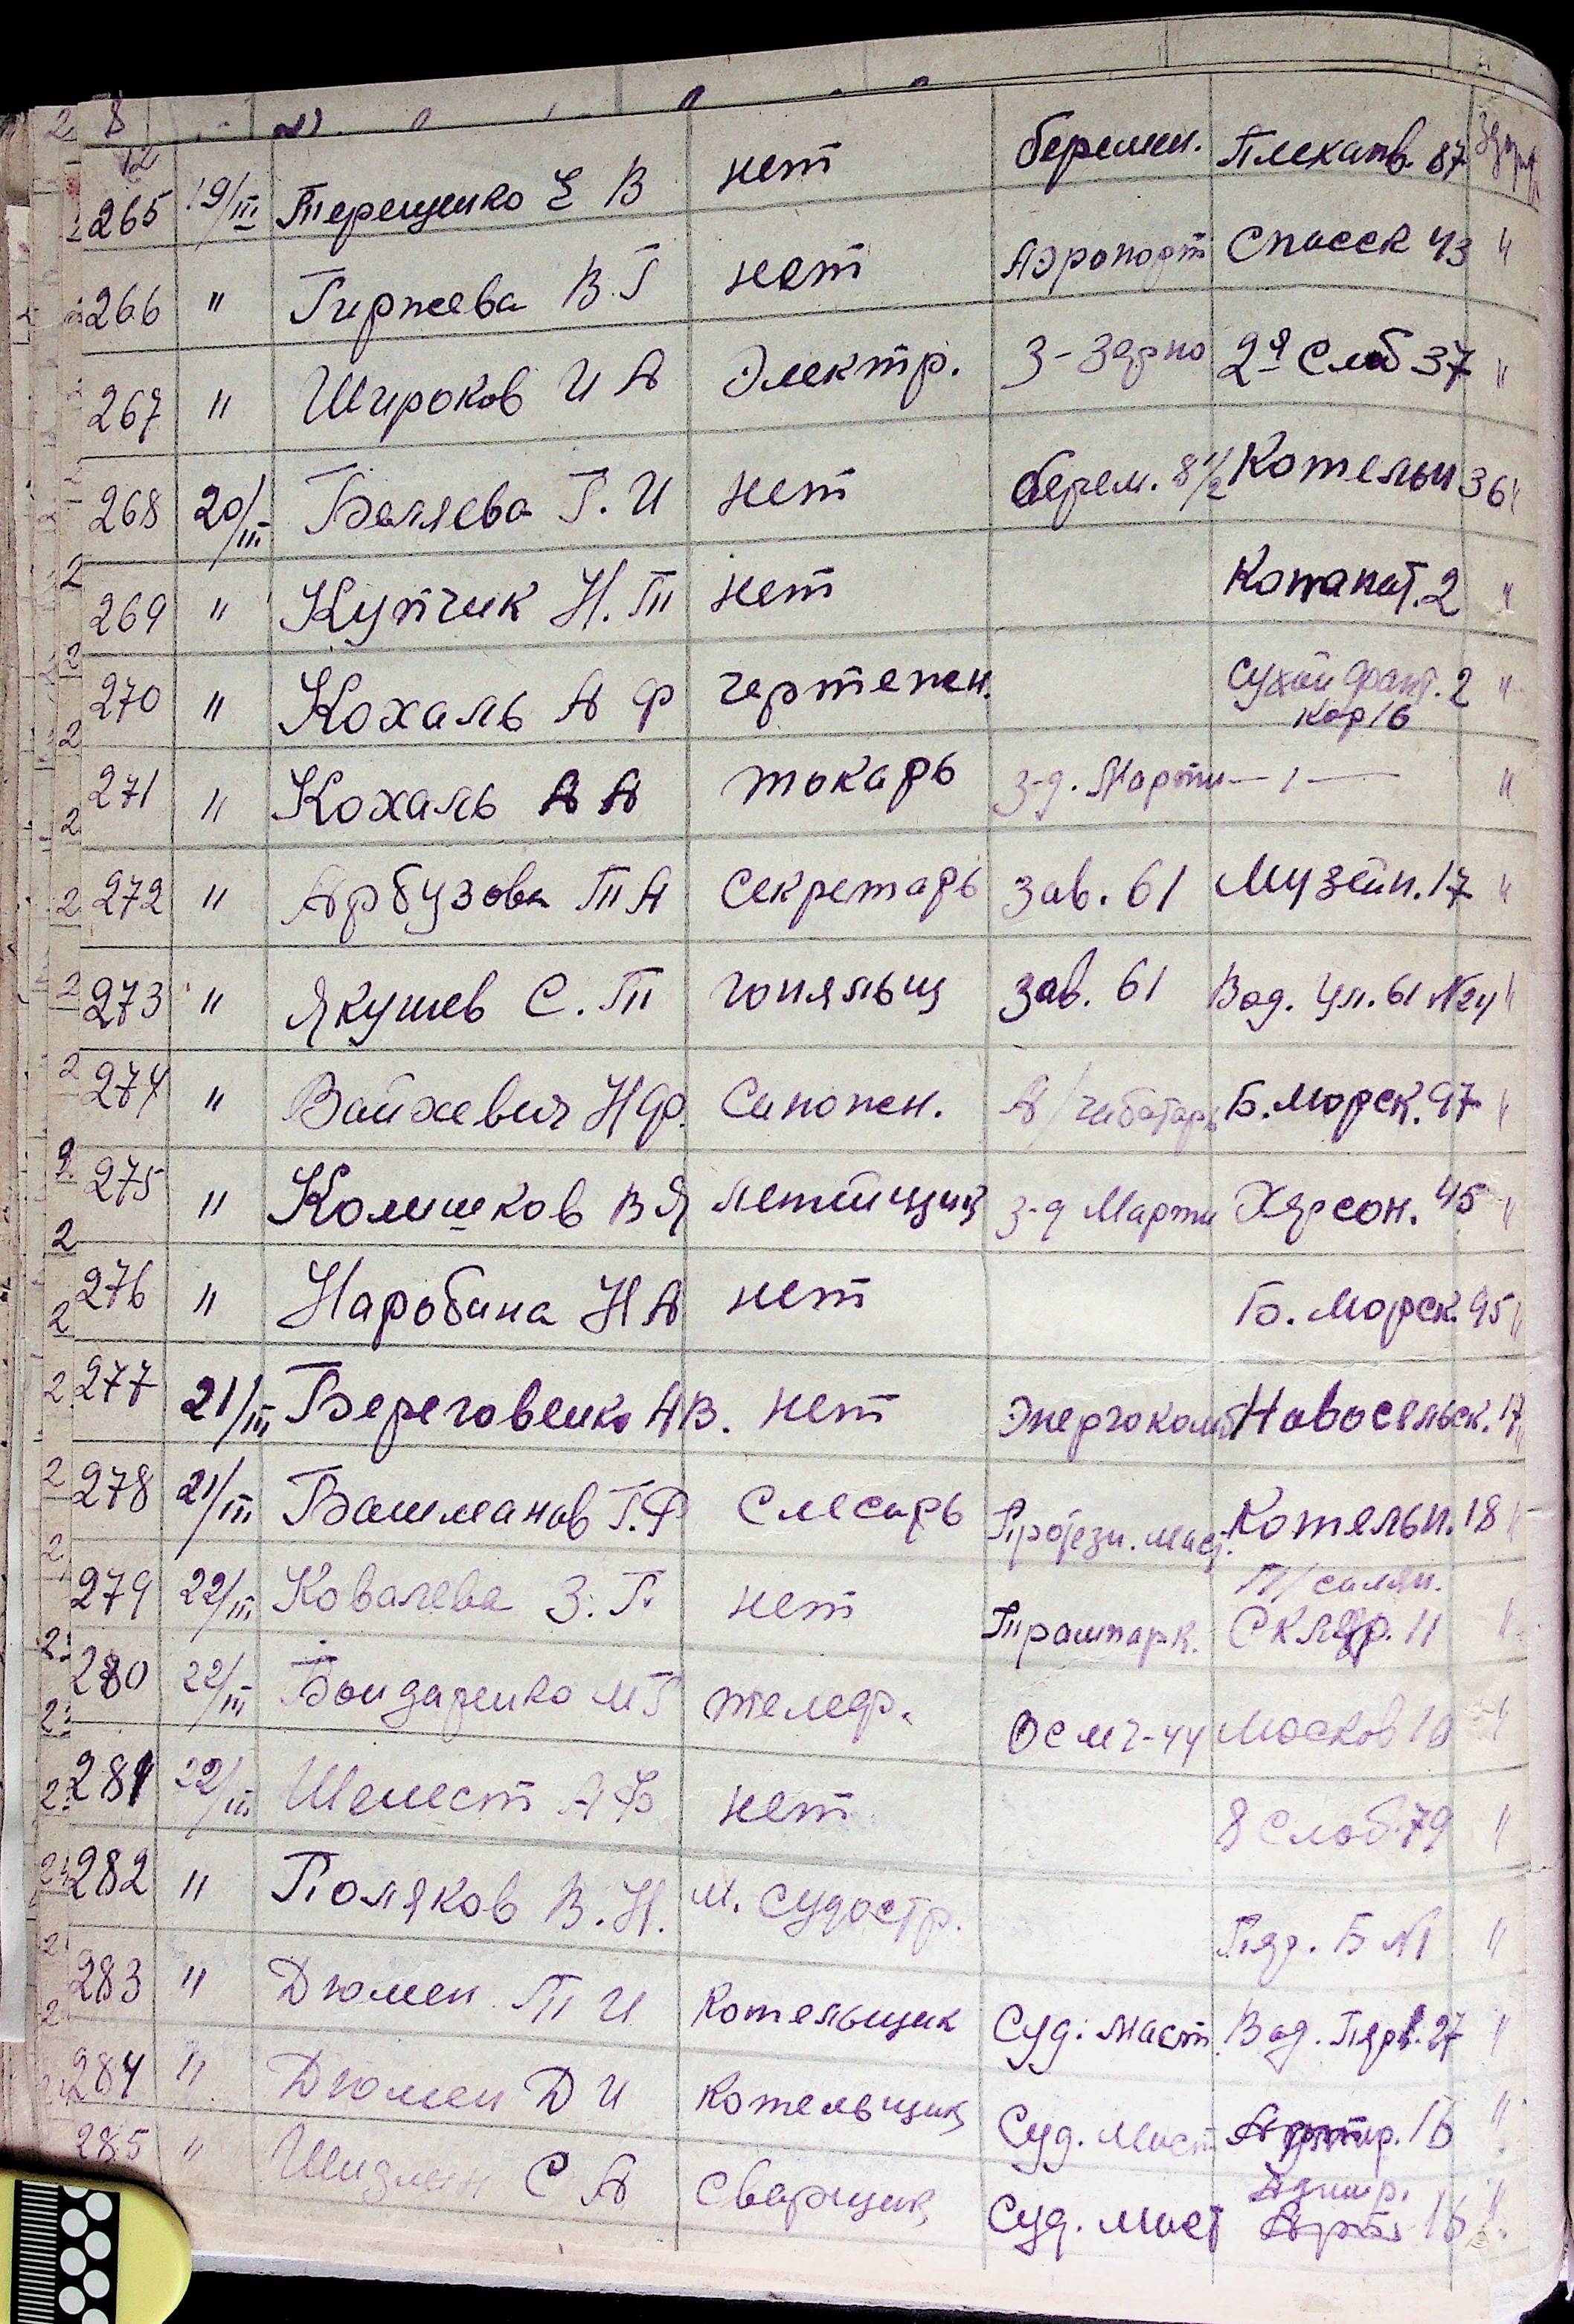 265 19/III Терещенко Е В нет беремен. Плехан. 87
266 " Гиржева В.Г нет Аэропорт Спасск 43 "
267 " Широков И А Электр. З-Зерно 2я Слоб 37 "
268 20/III Беляева Г. И нет берем. 8 1/2 Котельн 36 "
269 " Купчик Н. П нет Канатн. 2 "
270 " Кохаль А Ф чертежн. Сухой фонт. 2 "
кор 16
271 " Кохаль А А токарь з-д. Марти — " — "
272 " Арбузова П А Секретарь Зав. 61 Музейн. 17 "
273 " Якушев С. П Зав. 61 Вод. Ул. 61 №24 "
274 " Войхевич Н Ф. Сапожн. А/чеботарь Б. Морск. 97 "
275 " Колмшков В Я летейщик з-д Марти Херсон. 45 "
276 " Наробина Н А нет Б. Морск. 95 "
277 21/III Береговенко А В. нет Энергокомб Новосельск. 17 "
278 21/III Башманов Г. Ф Слесарь Протезн. маст. Котельн. 18 "
279 22/III Ковалева З. Г. нет Трампарк. Скляр. 11 "
280 22/III Бондаренко М Г телеф. ОСМЧ-44 Москов 10 "
281 22/III Шелест А Ф нет 8 Слоб. 79 "
282 " Поляков В. Н. м. Судостр. Б №1 "
283 " Дюмен П И Котельщик Суд. маст. Вод. Перв. 27 "
284 " Дюмен Д И Котельщик Суд. Маст 16 "
285 " С А Сварщик Суд. Маст Адмир. 16 "